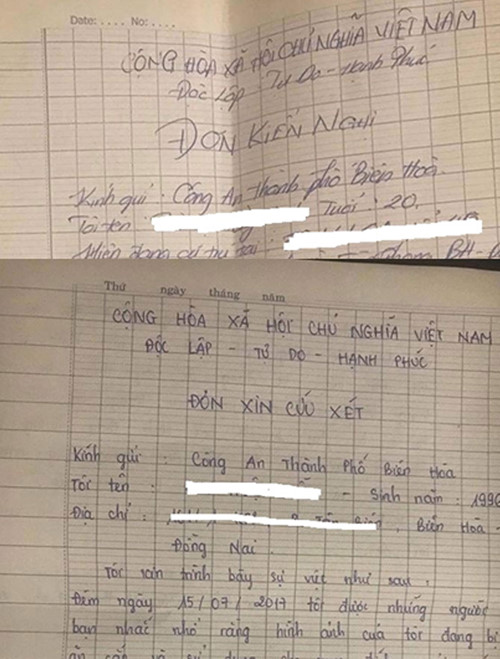 Date: .... No: ....
CỘNG HÒA XÃ HỘI CHỦ NGHĨA VIỆT NAM
Độc Lập - Tự Do - Hạnh Phúc
ĐƠN KIẾN NGHỊ
Kính gửi : Công An thành phố Biên Hoà.
Tôi tên : Tuổi : 20.
Hiện đang cư trú tại : BH-
Thứ ngày tháng năm
CỘNG HÒA XÃ HỘI CHỦ NGHĨA VIỆT NAM
ĐỘC LẬP - TỰ DO - HẠNH PHÚC
ĐƠN XIN CỨU XÉT
Kính gửi : Công An Thành Phố Biên Hòa
Tôi tên : - Sinh năm : 1996
Địa chỉ : , Biên Hòa -
Đồng Nai .
Tôi xin trình bày sự việc như sau :
Đêm ngày 15/07/2017 tôi được những người
bạn nhắc nhở rằng hình ảnh của tôi đang bị